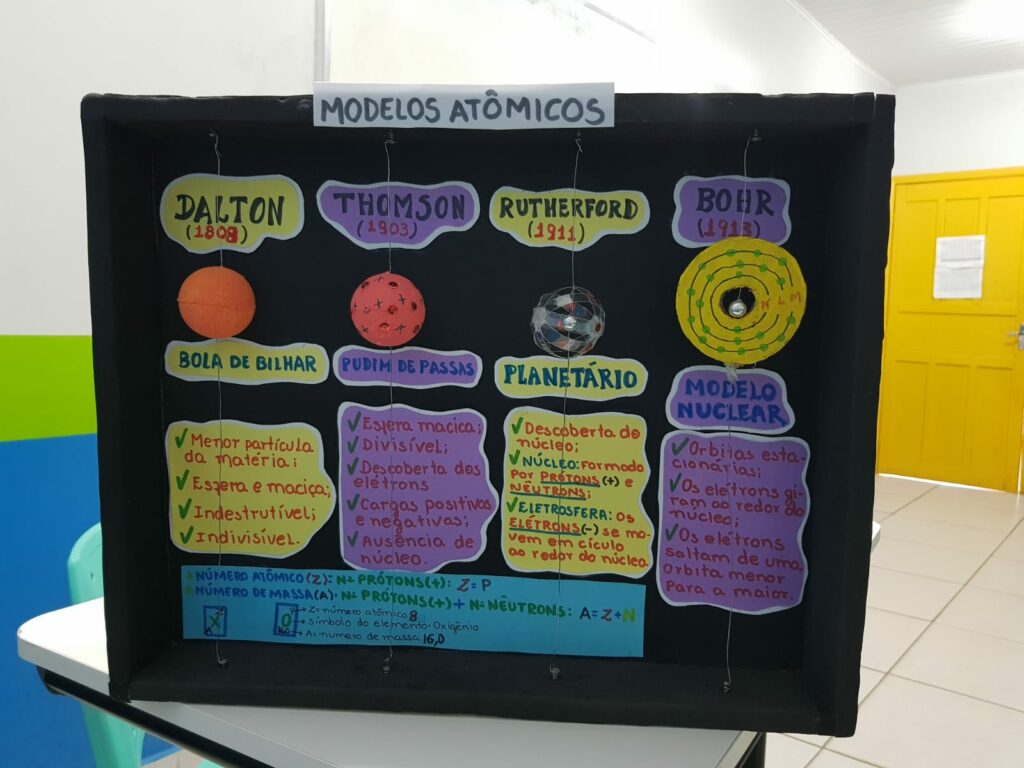 MODELOS ATÔMICOS
DALTON
(1808)
BOLA DE BILHAR
✓Menor partícula
da matéria;
✓Esfera e maciça;
✓Indestrutível;
✓Indivisível.
THOMSON
(1903)
PUDIM DE PASSAS
✓Esfera macica;
✓Divisível;
✓Descoberta dos
elétrons
✓Cargas positivas
e negativas;
✓Ausência de
núcleo.
RUTHERFORD
(1911)
PLANETÁRIO
✓Descoberta do
núcleo;
✓NÚCLEO: Formado
por PRÓTONS(+) e
NÊUTRONS;
✓ELETROSFERA: Os
ELÉTRONS(-) se mo-
vem em cículo
ao redor do núcleo.
BOHR
(1913)
K L M
MODELO
NUCLEAR
✓Orbitas esta-
cionárias;
✓Os elétrons gi-
ram ao redor do
núcleo;
✓Os elétrons
saltam de uma
orbita menor
Para a maior.
NÚMERO ATÔMICO(Z): Nº PRÓTONS(+): Z=P
NÚMERO DE MASSA(A): Nº PRÓTONS(+)+Nº NÊUTRONS: A=Z+N
Z
X
A
8
O
16,0
Z= número atômico 8
símbolo do elemento: Oxigênio
A= numero de massa 16,0